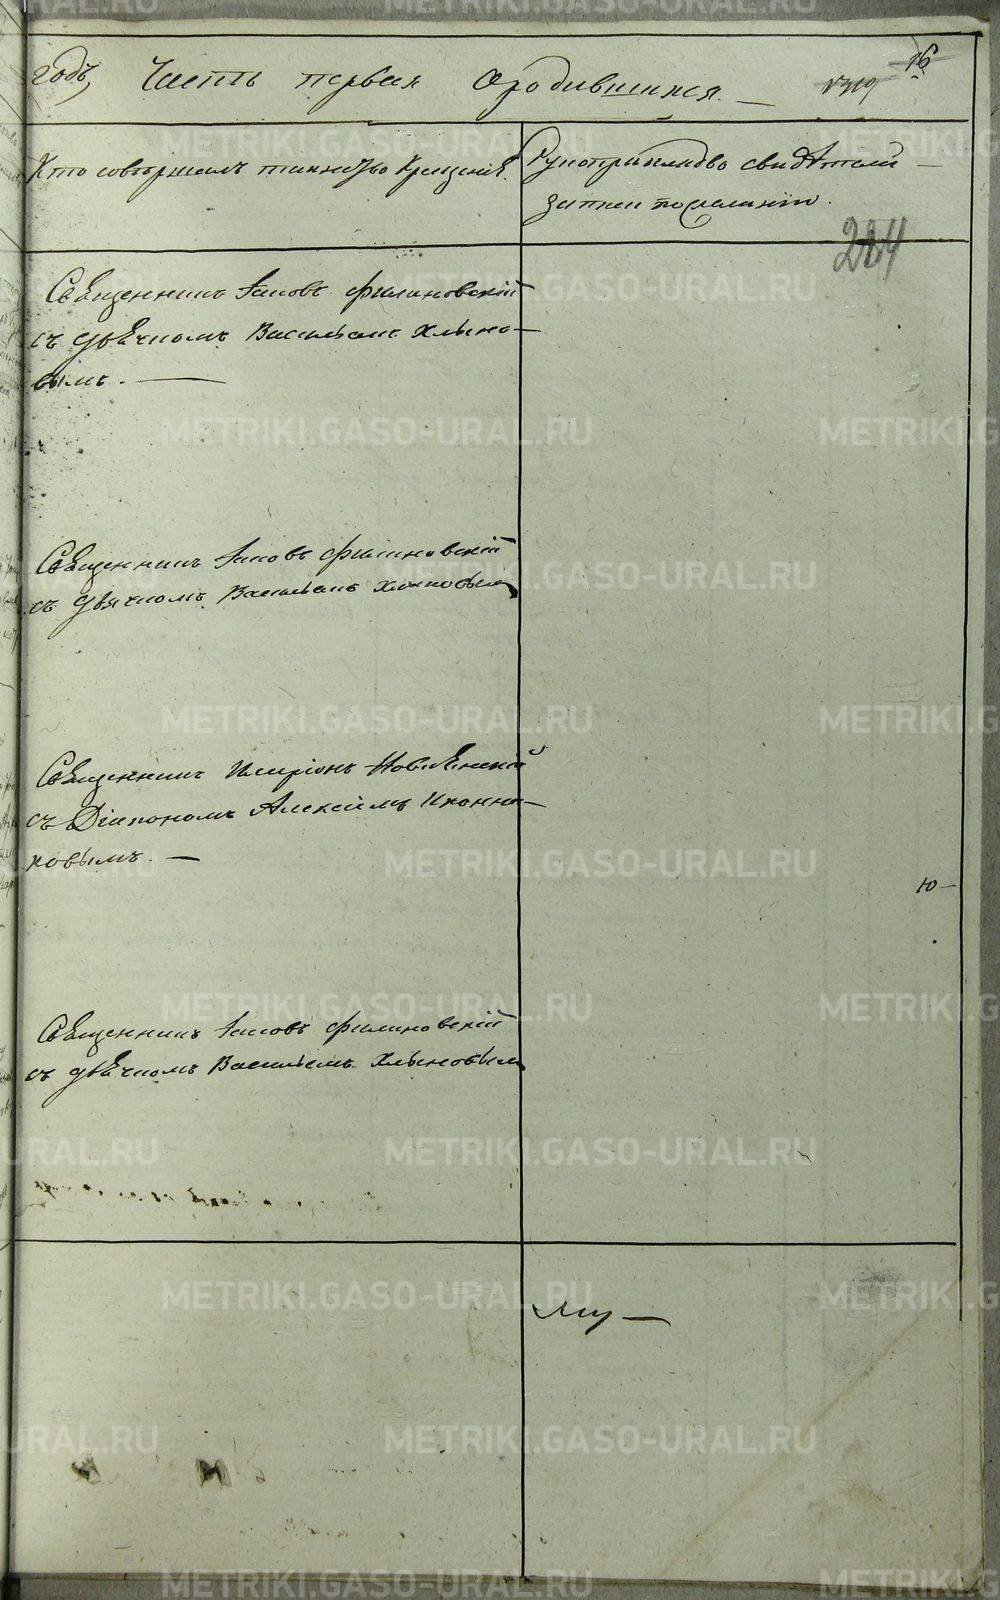 16
годъ, Часть первая ородившихся. —
Кто совершалъ таинство Крещенія.
Рукоприкладство свидѣтелей
записи по желанію.
224
Священникъ Іаковъ Филиновскій
съ дьячкомъ Васильемъ Хлыно-
вымъ. —
Священникъ Іаковъ Филиновскій
съ дьячкомъ Васильемъ Хлыновымъ
Священникъ Иларіонъ
съ Діакономъ Алексіемъ Иконни-
ковымъ. —
ю —
Священникъ Іаковъ Филиновскій
съ дьячкомъ Васильемъ Хлыновымъ
METRIKI.GASO-URAL.RU